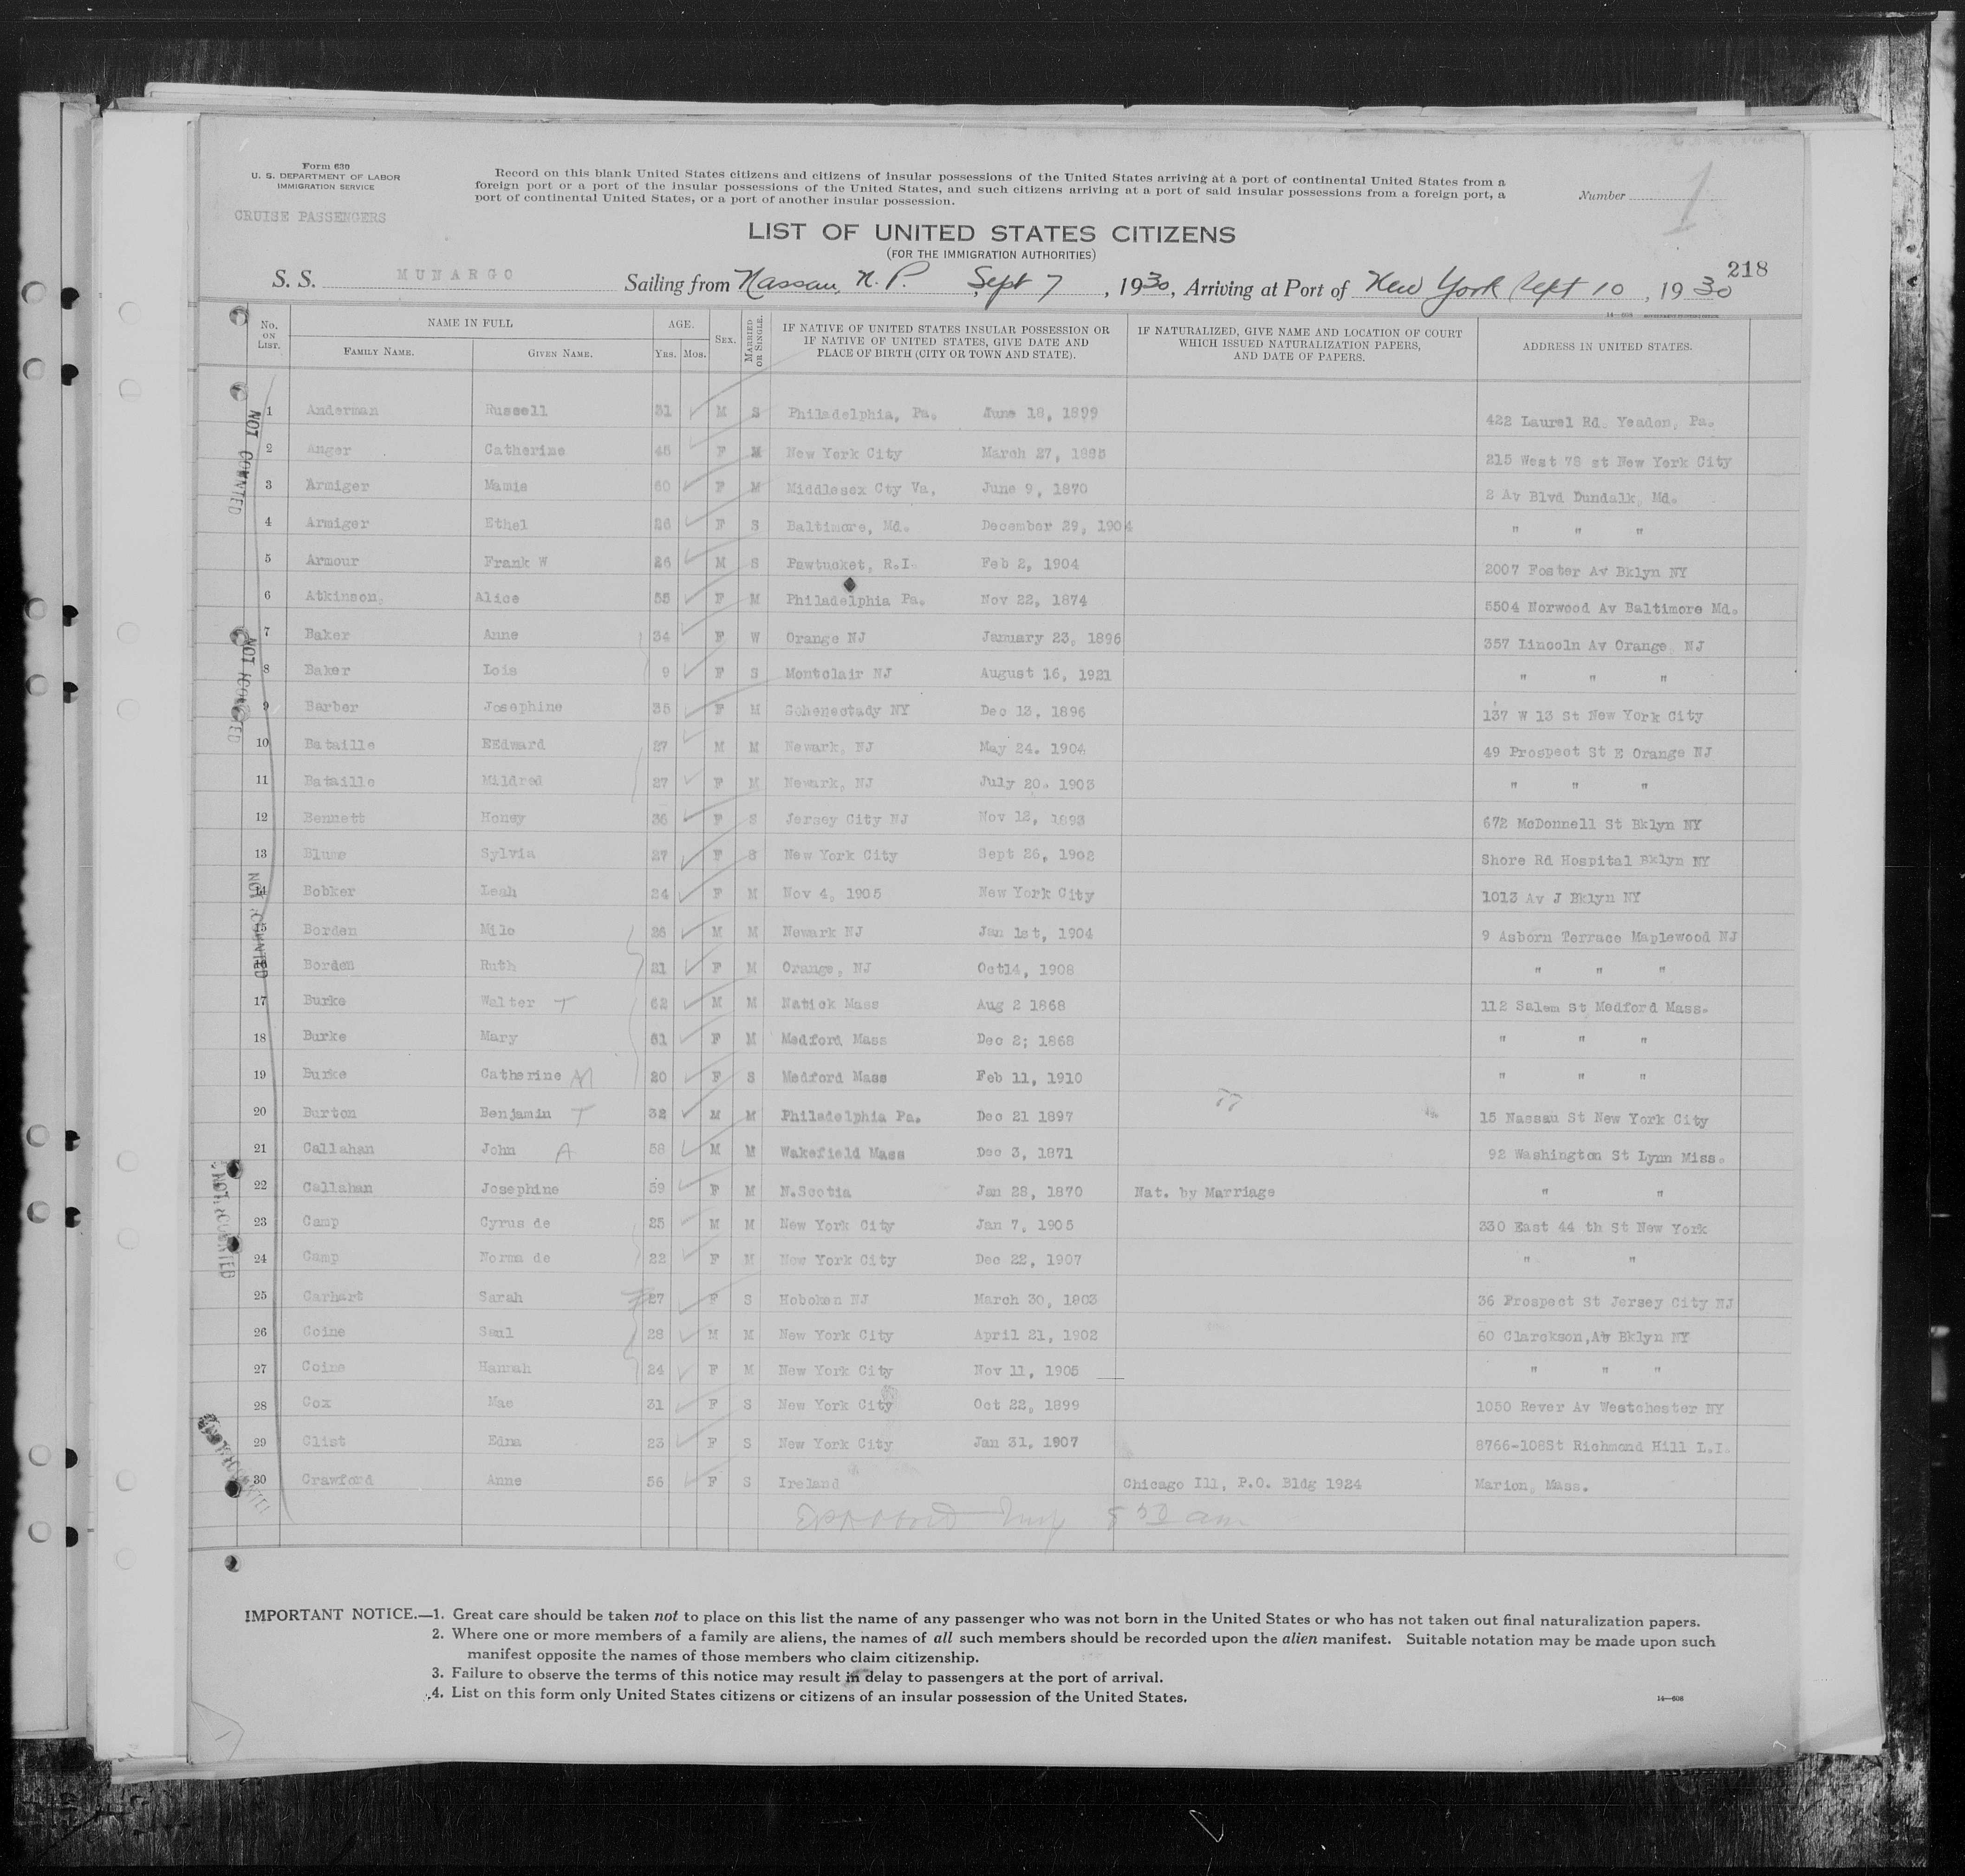 Form 630
U. S. DEPARTMENT OF LABOR
IMMIGRATION SERVICE
CRUISE PASSENGERS
Record on this blank United States citizens and citizens of insular possessions of the United States arriving at a port of continental United States from a
foreign port or a port of the insular possessions of the United States, and such citizens arriving at a port of said insular possessions from a foreign port, a
port of continental United States, or a port of another insular possession.
Number 1
LIST OF UNITED STATES CITIZENS
(FOR THE IMMIGRATION AUTHORITIES)
218
S. S. MUNARGO Sailing from Nassau, N. P. Sept 7, 1930, Arriving at Port of New York Sept 10, 1930
14-608
No. ON LIST. NAME IN FULL FAMILY NAME. GIVEN NAME. AGE. YRS. MOS. SEX. MARRIED OR SINGLE. IF NATIVE OF UNITED STATES INSULAR POSSESSION OR IF NATIVE OF UNITED STATES, GIVE DATE AND PLACE OF BIRTH (CITY OR TOWN AND STATE). IF NATURALIZED, GIVE NAME AND LOCATION OF COURT WHICH ISSUED NATURALIZATION PAPERS, AND DATE OF PAPERS. ADDRESS IN UNITED STATES.
1 Anderman Russell 31 M S Philadelphia, Pa. June 18, 1899 422 Laurel Rd. Yeadon, Pa.
2 Anger Catherine 45 F M New York City March 27, 1885 215 West 78 st New York City
3 Armiger Mamie 60 F M Middlesex Cty Va, June 9, 1870 2 Av Blvd Dundalk, Md.
4 Armiger Ethel 26 F S Baltimore, Md. December 29, 1904 " " "
5 Armour Frank W 26 M S Pawtucket, R.I. Feb 2, 1904 2007 Foster Av Bklyn NY
6 Atkinson, Alice 55 F M Philadelphia Pa. Nov 22, 1874 5504 Norwood Av Baltimore Md.
7 Baker Anne 34 F W Orange NJ January 23, 1896 357 Lincoln Av Orange NJ
8 Baker Lois 9 F S Montclair NJ August 16, 1921 " " "
9 Barber Josephine 35 F M Schenectady NY Dec 13, 1896 137 W 13 St New York City
10 Bataille EEdward 27 M M Newark, NJ May 24. 1904 49 Prospect St E Orange NJ
11 Bataille Mildred 27 F M Newark, NJ July 20. 1903 " " "
12 Bennett Honey 36 F S Jersey City NJ Nov 12, 1893 672 McDonnell St Bklyn NY
13 Blume Sylvia 27 F S New York City Sept 26, 1902 Shore Rd Hospital Bklyn NY
14 Bobker Leah 24 F M Nov 4, 1905 New York City 1013 Av J Bklyn NY
15 Borden Milo 26 M M Newark NJ Jan 1st, 1904 9 Asborn Terrace Maplewood NJ
Borden Ruth 21 F M Orange, NJ Oct14, 1908 " " "
17 Burke Walter T 62 M M Natick Mass Aug 2 1868 112 Salem St Medford Mass.
18 Burke Mary 61 F M Medford Mass Dec 2; 1868 " " "
19 Burke Catherine M 20 F S Medford Mass Feb 11, 1910 " " "
20 Burton Benjamin T 32 M M Philadelphia Pa. Dec 21 1897 15 Nassau St New York City
21 Callahan John A 58 M M Wakefield Mass Dec 3, 1871 92 Washington St Lynn Miss.
22 Callahan Josephine 59 F M N.Scotia Jan 28, 1870 Nat. by Marriage " "
23 Camp Cyrus de 25 M M New York City Jan 7, 1905 230 East 44 th St New York
24 Camp Norma de 22 F M New York City Dec 22, 1907 " "
25 Carhart Sarah 27 F S Hoboken NJ March 30, 1903 36 Prospect St Jersey City NJ
26 Coine Saul 28 M M New York City April 21, 1902 60 Clarckson,Av Bklyn NY
27 Coine Hannah 24 F M New York City Nov 11, 1905 " " "
28 Cox Mae 31 F S New York City Oct 22, 1899 1050 Rever Av Westchester NY
29 Clist Edna 23 F S New York City Jan 31, 1907 8766-108St Richmond Hill L.I.
30 Crawford Anne 56 F S Ireland Chicago Ill, P.O. Bldg 1924 Marion, Mass.
8 30 am
NOT
NOT
NOT
NOT
IMPORTANT NOTICE.—1. Great care should be taken not to place on this list the name of any passenger who was not born in the United States or who has not taken out final naturalization papers.
2. Where one or more members of a family are aliens, the names of all such members should be recorded upon the alien manifest. Suitable notation may be made upon such
manifest opposite the names of those members who claim citizenship.
3. Failure to observe the terms of this notice may result in delay to passengers at the port of arrival.
4. List on this form only United States citizens or citizens of an insular possession of the United States.
14—608